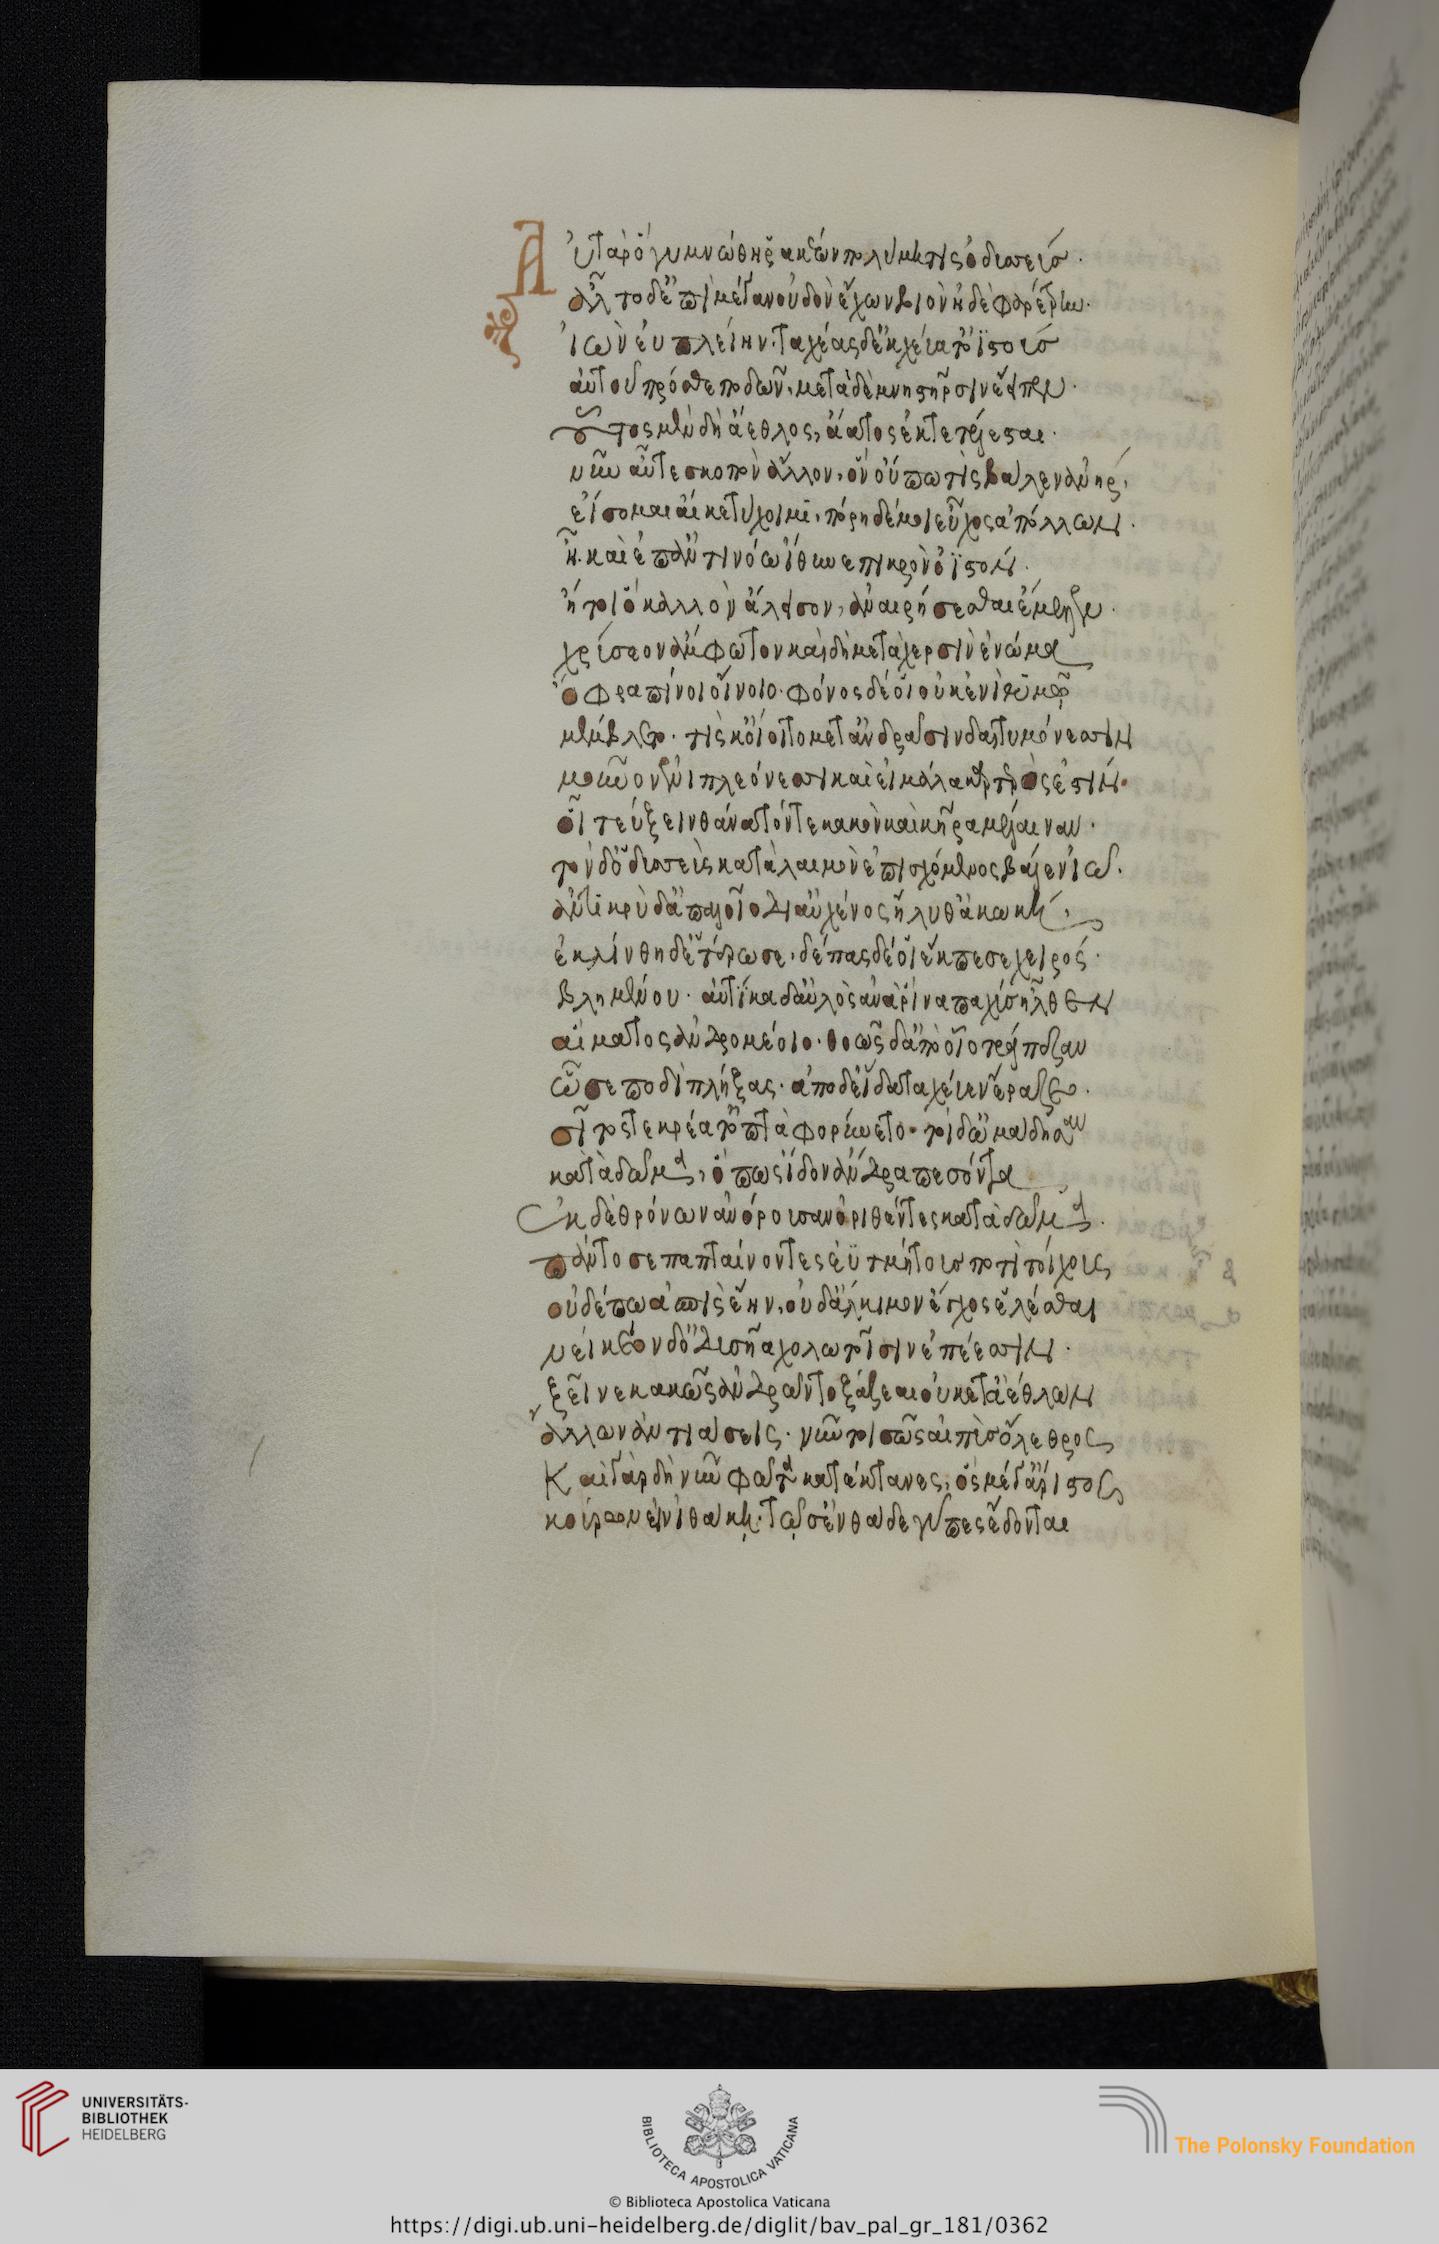 Αὐτὰρ ὃ γυμνώθη ῥακέων πολύμητις ὀδυσσεύς.
ἆλτο δ' ἐπὶ μέγαν οὐδὸν ἔχων βιὸν ἠδὲ φαρέτρην.
ἰῶν ἐμπλείην. ταχέας δ' ἐκχεύατ' ὀϊστούς
αὐτοῦ πρόσθε ποδῶν, μετὰ δὲ μνηστῆρσιν ἔειπεν.
οὗτος μὲν δὴ ἄεθλος, ἀάατος ἐκτετέλεσται.
νῦν αὖτε σκοπὸν ἄλλον, ὃν οὔπω τὶς βάλεν ἀνήρ,
εἴσομαι αἴ κε τύχοιμι, πόρη δέ μοι εὖχος ἀπόλλων.
ἦ. καὶ ἐπ' ἀντινόῳ ἰθύνετο πικρὸν ὀϊστόν.
ἤτοι ὁ καλὸν ἄλεισον, ἀναιρήσεσθαι ἔμελλε.
χρύσεον ἄμφωτον καὶ δὴ μετὰ χερσὶν ἐνώμα
ὄφρα πίνοι οἴνοιο. φόνος δέ οἱ οὐκ ἐνὶ θυμῷ
μέμβλετο. τίς κ' οἴοιτο μετ' ἀνδράσιν δαιτυμόνεσσιν
μοῦνον ἐνὶ πλεόνεσσι καὶ εἰ μάλα καρτερὸς εἴη.
οἷ τεύξειν θάνατόν τε κακὸν καὶ κῆρα μέλαιναν.
τὸν δ' ὀδυσσεὺς κατὰ λαιμὸν ἐπισχόμενος βάλεν ἰῷ.
ἀντικρὺ δ' ἁπαλοῖο δι' αὐχένος ἤλυθ' ἀκωκή,
ἐκλίνθη δ' ἑτέρωσε, δέπας δέ οἱ ἔκπεσε χειρός.
βλημένου. αὐτίκα δ' αὐλὸς ἀνὰ ῥῖνα παχὺς ἦλθεν
αἵματος ἀνδρομέοιο. θοῶς δ' ἀπὸ οἷο τράπεζαν
ὦσε ποδὶ πλήξας. ἀπὸ δ' εἴδατα χεῦεν ἔραζε.
σῖτός τε κρέα τ' ὀπτὰ φορύνετο. τοὶ δ' ὁμάδησαν
κατὰ δώματ', ὅπως ἴδον ἄνδρα πεσόντα
ἐκ δὲ θρόνων ἀνόρουσαν ὀρινθέντες κατὰ δῶμα.
πάντοσε παπταίνοντες ἐϋτμήτους ποτὶ τοίχους
οὐδέ πω ἀσπὶς ἔην, οὐδ' ἄλκιμον ἔγχος ἑλέσθαι
νείκεον δ' ὀδυσῆα χολωτοῖσιν ἐπέεσσιν.
ξεῖνε κακῶς ἀνδρῶν τοξάζεαι οὐκέτ' ἀέθλων
ἄλλων ἀντιάσεις. νῦν τοι σῶς αἰπὺς ὄλεθρος
Καὶ γὰρ δὴ νῦν φῶτα κατέκτανες, ὃς μέγ' ἄριστος
κούρων εἰν ἰθάκῃ. τῷ σ' ἐνθάδε γῦπες ἔδονται
UNIVERSITÄTS-
BIBLIOTHEK
HEIDELBERG
BIBLIOTECA APOSTOLICA VATICANA
The Polonsky Foundation
© Biblioteca Apostolica Vaticana
https://digi.ub.uni-heidelberg.de/diglit/bav_pal_gr_181/0362